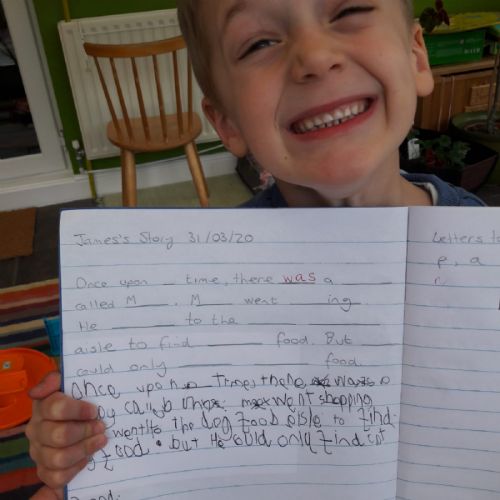 James's Story 31/03/20
Once upon __ time, there was a ____
called M___. M___ went ____ing.
He ____ to the ____ ____
aisle to find ____ food. But ____
could only ____ ____ food.
once upon time there was a
went shopping
went to the dog food aisle to find
food. but He could only find cat
food.
Letters t
p, a
r,